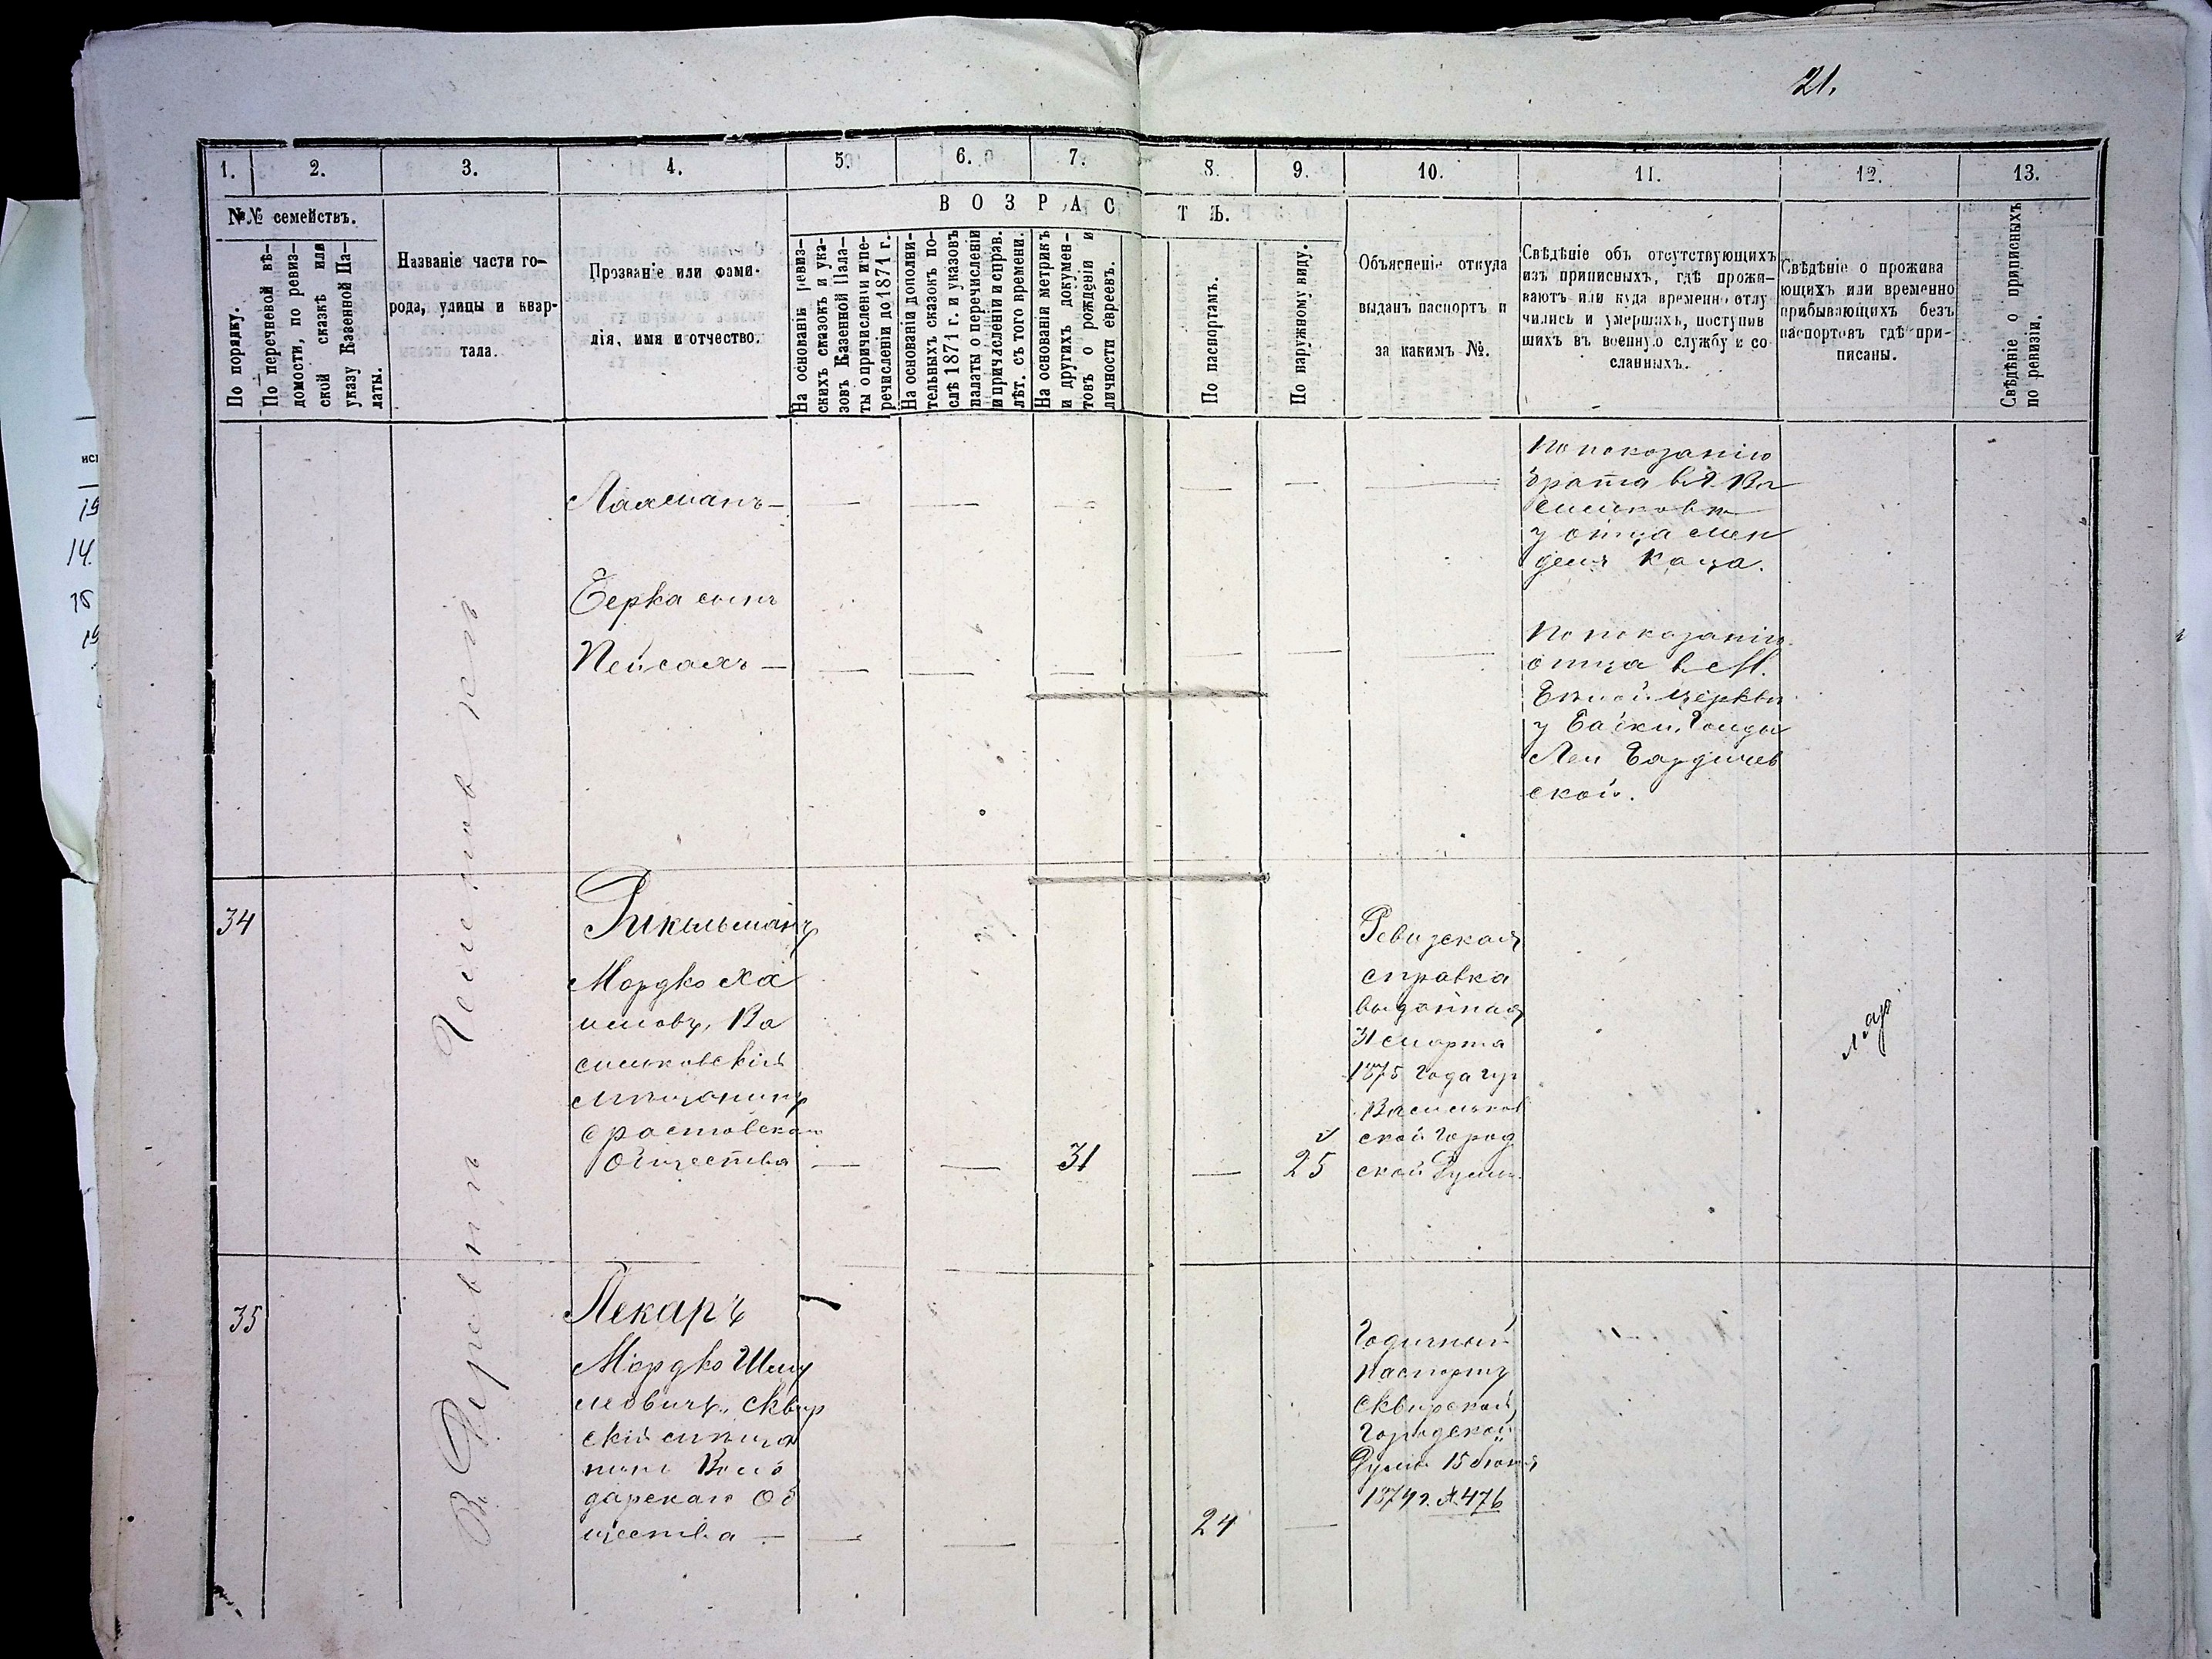 21.
1. 2. 3. 4. 5. 6. 7. 8. 9. 10. 11. 12. 13.
№№ семействъ.
По порядку.
По перечневой вѣ-
домости, по ревиз-
ской сказкѣ или
указу Казенной Па-
латы.
Названіе части го-
рода, улицы и квар-
тала.
Прозваніе или фами-
лія, имя и отчество.
ВОЗРАСТЪ.
На основаніи ревиз-
скихъ сказокъ и ука-
зовъ Казенной Пала-
ты о причисленіи и пе-
речисленіи до 1871 г.
На основаніи дополни-
тельныхъ сказокъ по-
слѣ 1871 г. и указовъ
палаты о перечисленіи
и причисленіи и справ.
лѣт. съ того времени.
На основаніи метрикъ
и другихъ докумен-
товъ о рожденіи и
личности евреевъ.
По паспортамъ.
По наружному виду.
Объясненіе откуда
выданъ паспортъ и
за какимъ №.
Свѣдѣніе объ отсутствующихъ
изъ приписныхъ, гдѣ прожи-
ваютъ или куда временно отлу
чились и умершихъ, поступив
шихъ въ военную службу и со-
сланныхъ.
Свѣдѣніе о прожива
ющихъ или временно
прибывающихъ безъ
паспортовъ гдѣ при-
писаны.
Свѣдѣніе о приписныхъ
по ревизіи.
Лахманъ —
По показанію
брата въ г. Ва
сильковѣ
у отца Мен
деля Каца.
Берка сынъ
Пейсахъ —
По показанію
отца в М.
Бѣлой церкви
у Бабки
Леи Бардичев
ской.
34
Мордко Ха
имовъ, Ва
сильковскій
мѣщанинъ
Фастовскаго
Общества
31
25
Ревизская
справка
выданная
31 марта
1875 года
Васильков
ской Город
ской Думы
35
Пекарь
Мордко Шму
левичъ, Сквир
скій мѣща
нинъ Воло
дарскаго Об
щества —
24
Годичный
паспортъ
Сквирской
Городской
Думы 15 Іюня
1874 г. № 476